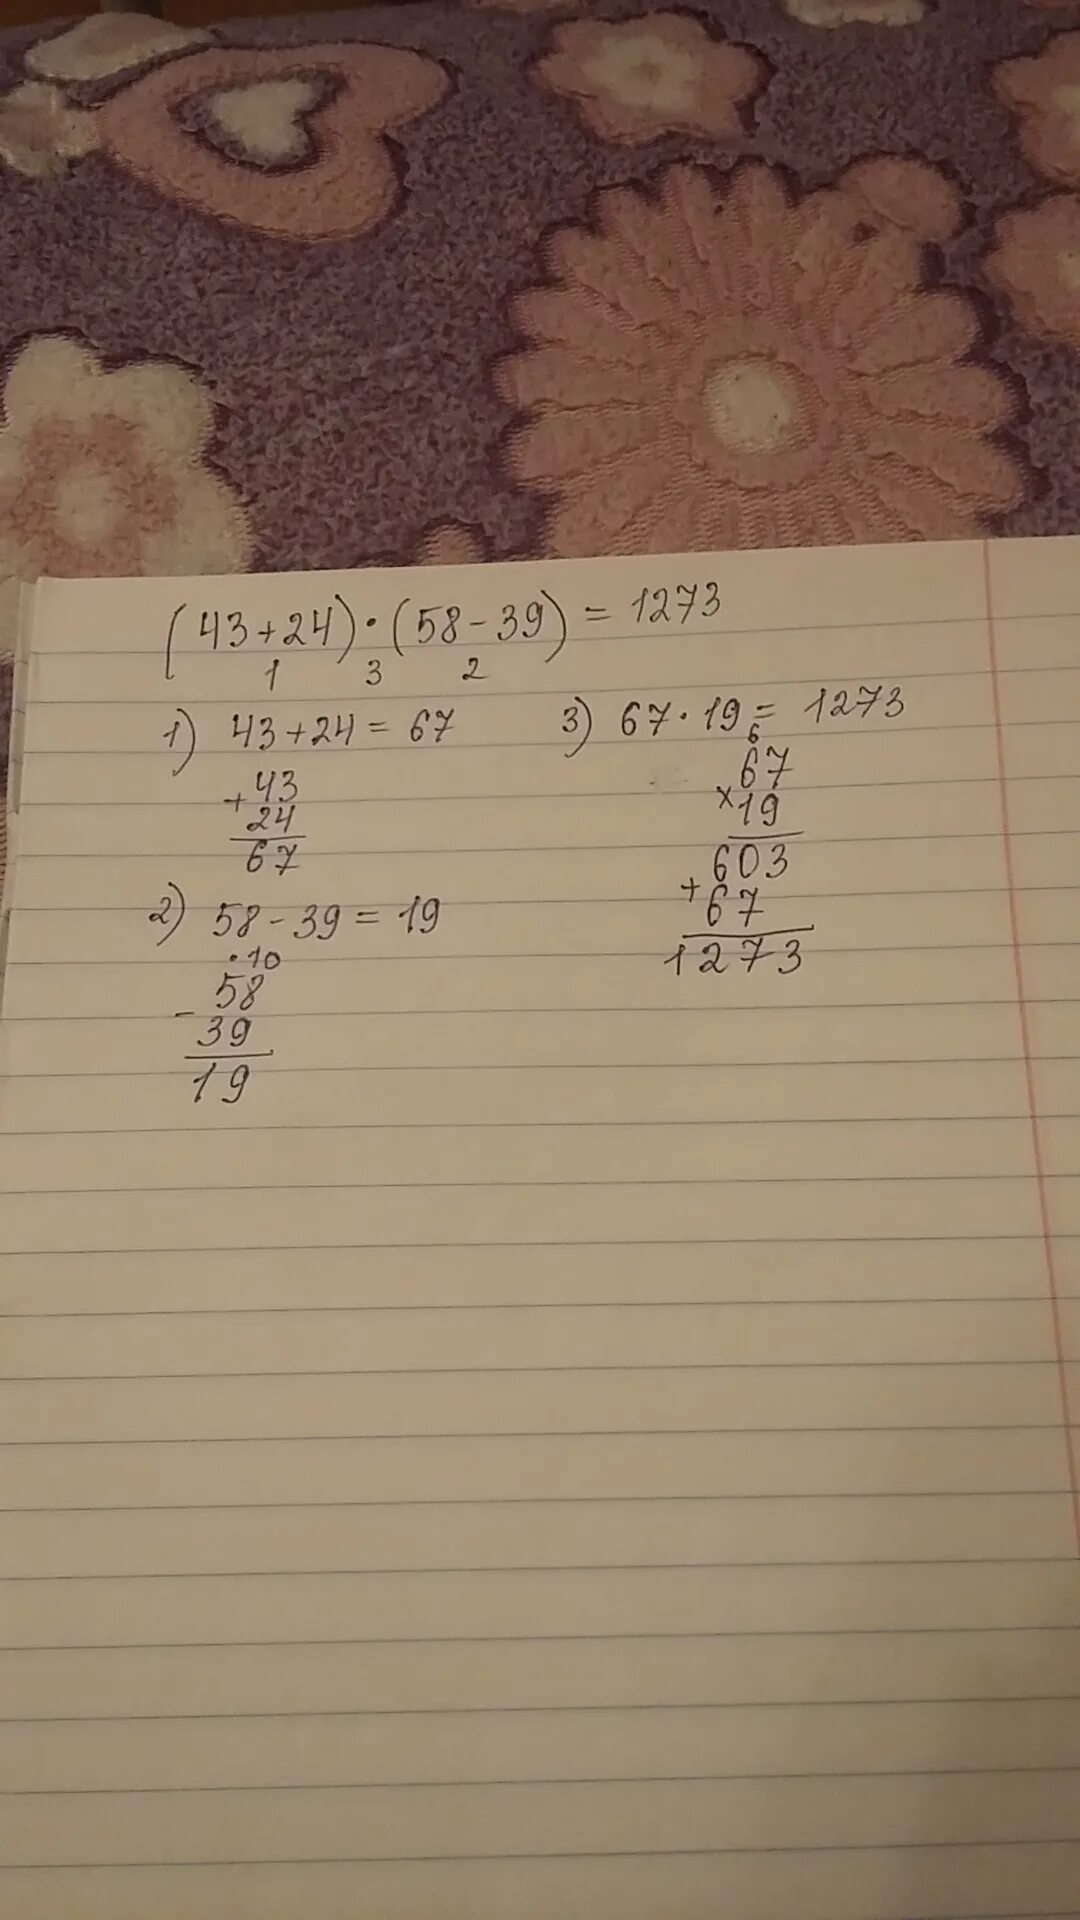 (43+24)·(58-39)=1273
1 3 2
1) 43+24=67
+43
24
67
2) 58-39=19
·10
58
-
39
19
3) 67·19=1273
6
67
×19
603
+
67
1273